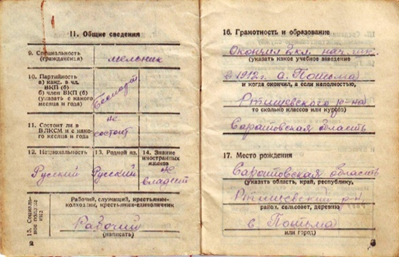 11. Общие сведения
9. Специальность
(гражданская)
мельник
10. Партийность
а) канд. в чл.
ВКП (б)
б) член ВКП (б)
(указать с какого
месяца и года)
11. Состоит ли в
ВЛКСМ и с како-
го месяца и года
не
состоит
12. Национальность
13. Родной яз.
14. Знание
иностранных
языков
Русский
Русский
не
владеет
15.
Рабочий, служащий, крестьянин-
колхозник, крестьянин-единоличник
Рабочий
(написать)
16. Грамотность и образование
Окончил 2 кл. нач. шк.
(указать какое учебное заведение
в 1912 г. с. Потьма
и когда окончил, а если неполностью,
Ртищевского р-на
то сколько классов или курсов)
Саратовская область
17. Место рождения
Саратовская область
(указать область, край, республику,
Ртищевский р-н
район, сельсовет, деревню
с Потьма
или город)